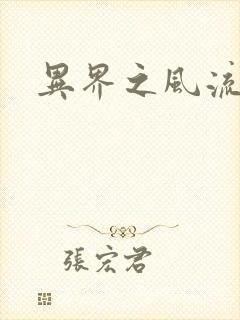 異界之風流
張宏君